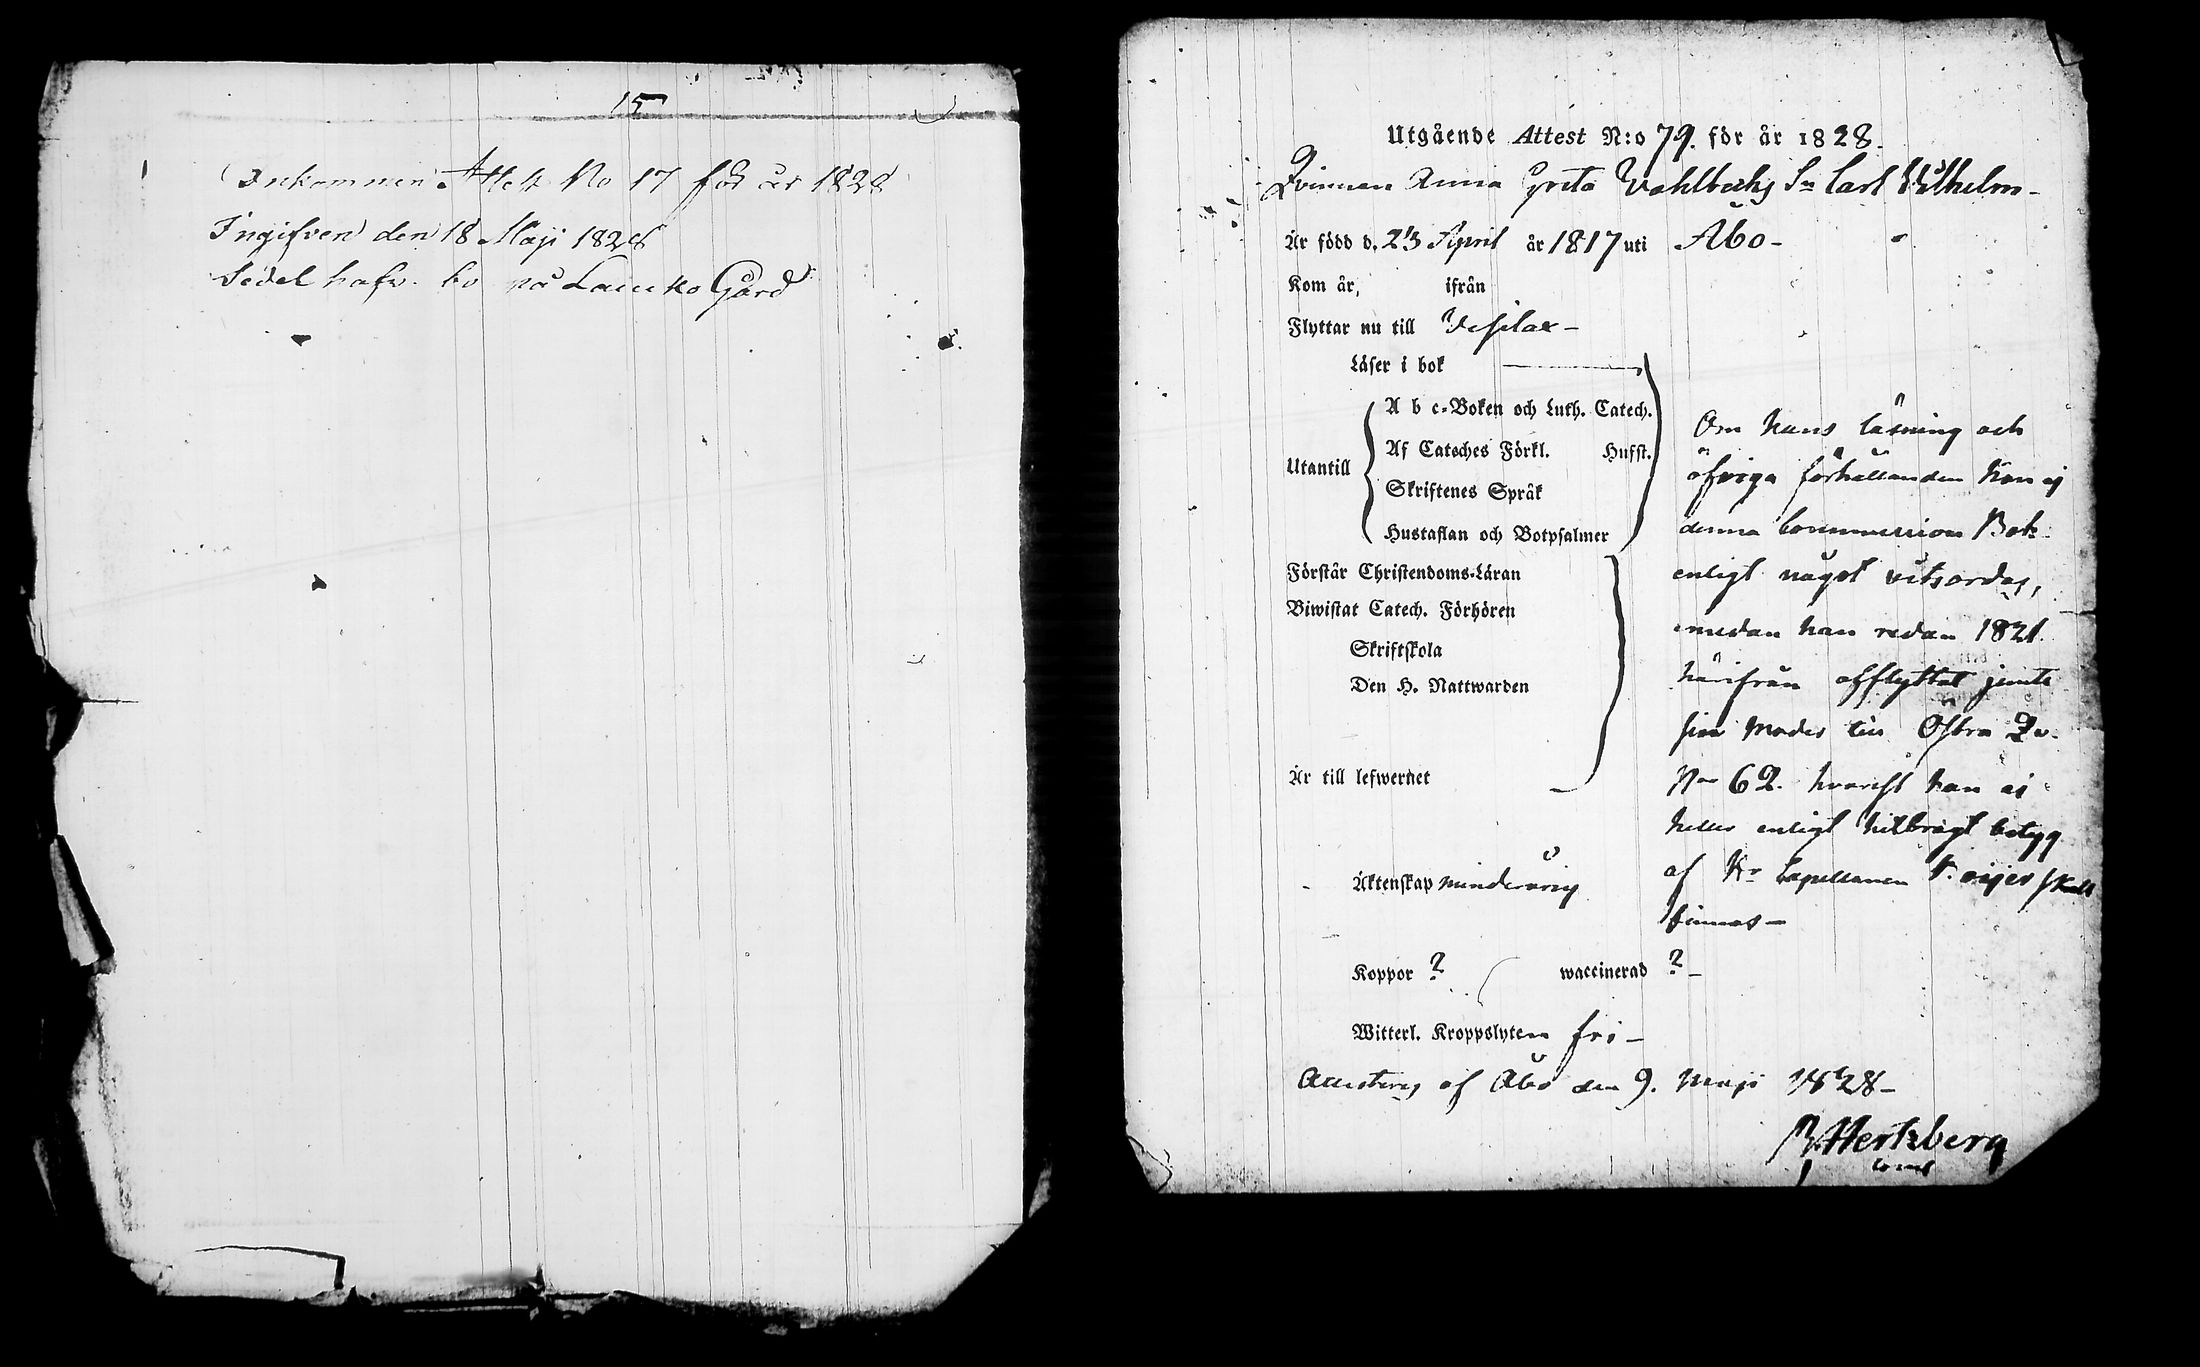 15
Inkommen Attest No 17 för år 1828
Ingifven den 18 Maji 1828
Sedel hafv. bo på Laukko Gård
Utgående Attest N:o 79. för år 1828.
Qvinnan Anna Greta Vahlbergs Sn Carl Wilhelm-
Är född d. 23 April år 1817 uti Åbo-
Kom år, ifrån
Flyttar nu till Vesilax-
Läser i bok
A b c-Boken och Luth. Catech.
Af Cateches Förkl. Husst.
Utantill
Skriftenes Språk
Hustaflan och Botpsalmer
Förstår Christendoms-Läran
Biwistat Catech. Förhören
Skriftskola
Den H. Nattwarden
Är till lefwernet
Om hans läsning och
öfriga förhållanden kan ej
denna Communion Bok
enligt något vitsordas,
emedan han redan 1821
härifrån afflyttat jemte
sin Moder till Östra Qv.
No 62. hvarest han ej
heller enligt hitbragt betyg
af Kr Capellanen skall
finnas-
Äktenskap minderårig
Koppor ? waccinerad ?-
Witterl. Kroppslyten fri-
Attesteras af Åbo den 9. Maji 1828-
Hertzberg